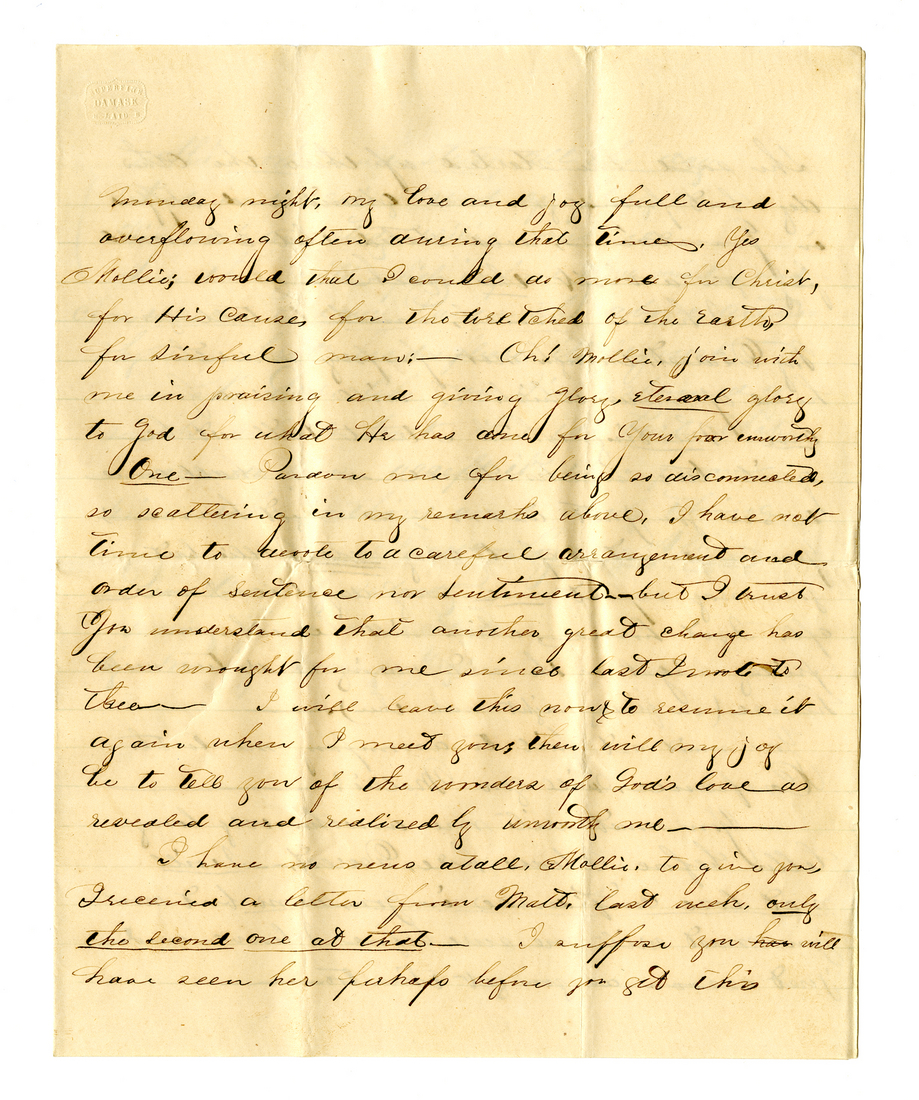 SUPERFINE
DAMASK
LAID
Monday night, my love and joy full and
overflowing often during that time. Yes
Mollie; would that I could do more for Christ,
for His cause, for the wretched of the Earth,
for sinful man;— Oh! Mollie, join with
me in praising and giving glory, eternal glory
to God for what He has done for Your poor unworthy
One— Pardon me for being so disconnected,
so scattering in my remarks above, I have not
time to devote to a careful arrangement and
order of sentence nor sentiment—but I trust
You understand that another great change has
been wrought for me since last I wrote to
thee— I will leave this now & to resume it
again when I meet you; then will my joy
be to tell you of the wonders of God's love as
revealed and realized by unworthy me—
I have no news atall, Mollie, to give you,
I received a letter from Matt. last week, only
the second one at that— I suppose you have will
have seen her perhaps before you get this